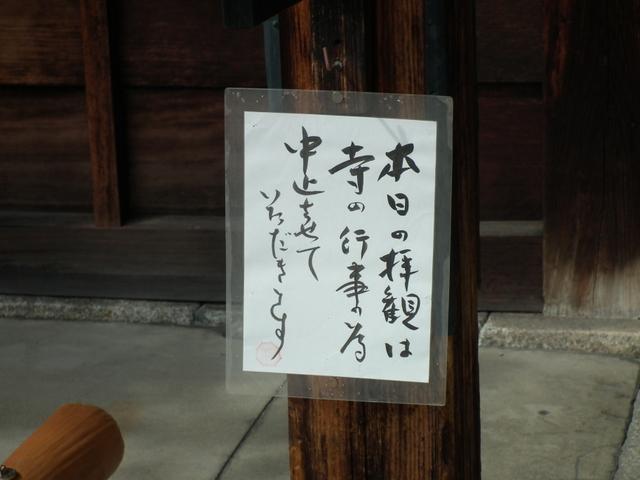 本日の拝観は
寺の行事の為
中止させて
いただきます